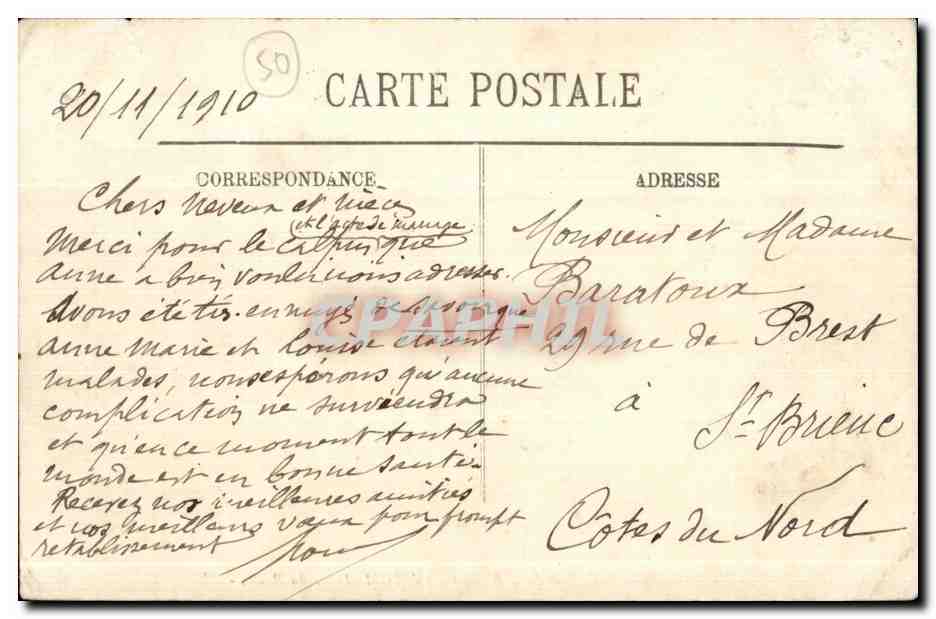 20/11/1910
50
CARTE POSTALE
CORRESPONDANCE
Chers neveux et nièce
et l'acte de mariage
Merci pour le que
Anne a bien voulu nous adresser.
Avons été très ennuyés de savoir que
Anne Marie et Louise étaient
malades, nous espérons qu'aucune
complication ne surviendra
et qu'en ce moment tout le
monde est en bonne santé.
Recevez nos meilleures amitiés
et nos meilleurs vœux pour prompt
retablissement
ADRESSE
Monsieur et Madame
Baratoux
29 rue de Brest
à
St Brieuc
Côtes du Nord
CPAPHIL